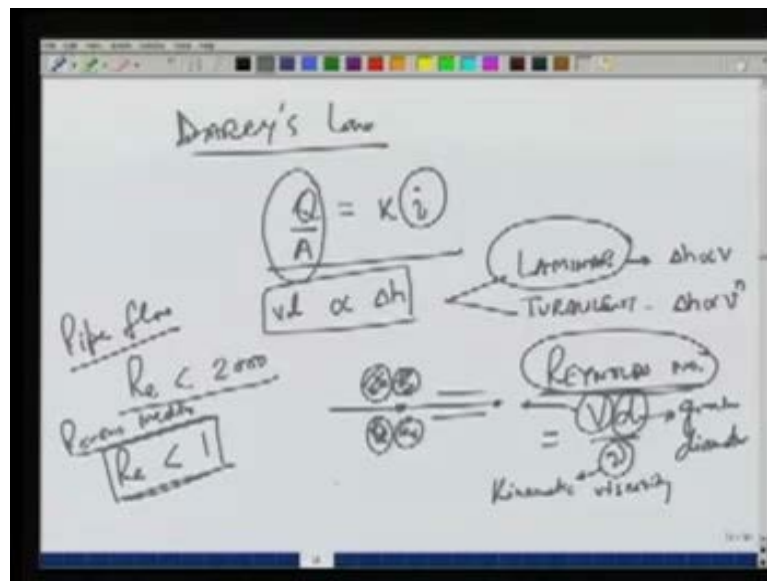 DARCY's Law
Q/A = K i
vel ∝ Δh
LAMINAR → Δh∝V
TURBULENT - Δh∝Vⁿ
Pipe flow
Re < 2000
Porous media
Re < 1
REYNOLDS no.
= Vd/ν
grain
diameter
Kinematic viscosity